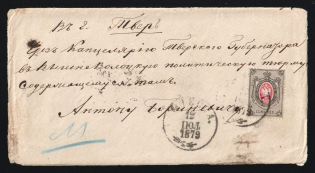 Въ г. Тверь
Чрезъ Канцелярію Тверского Губернатора
въ Вышневолоцкую политическую тюрьму
Содержащемуся тамъ
Антону
12
ІЮЛ.
1879